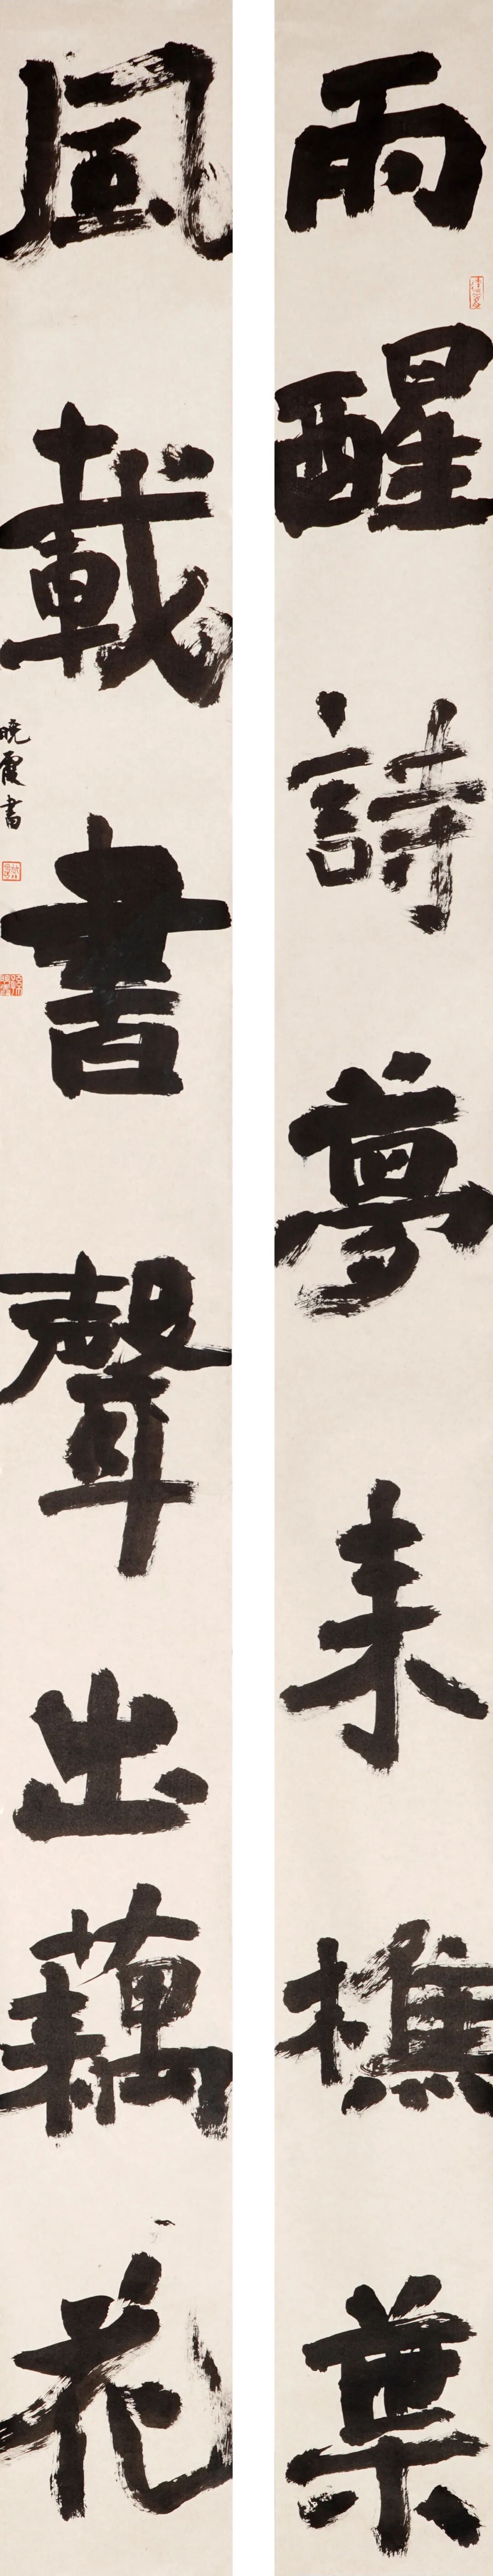 雨醒詩夢来樵葉
風載書聲出藕花
晓霞書